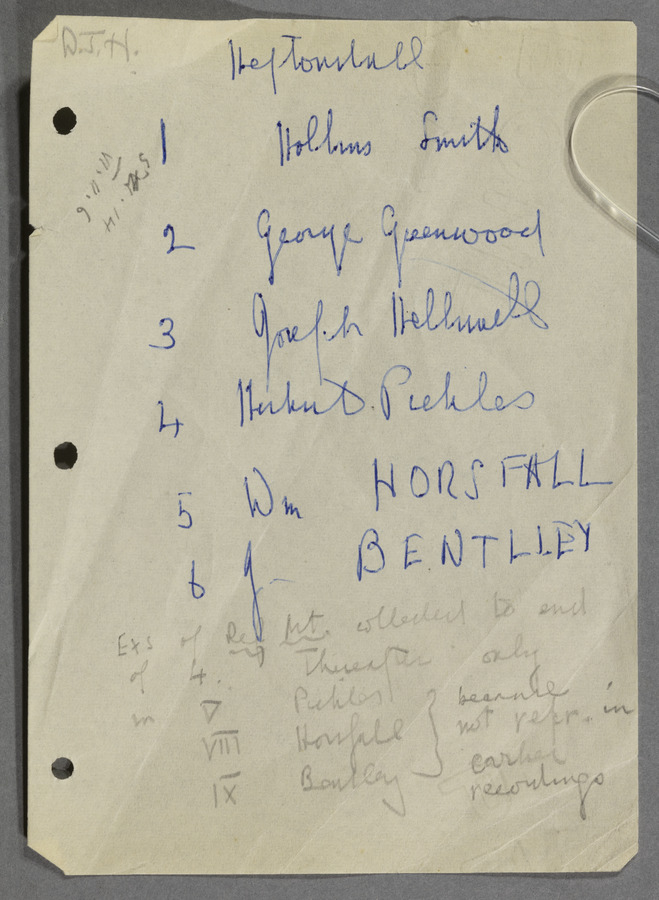 D.J.H.
Heptonstall
1 Hollins Smith
2 George Greenwood
3 Joseph Helliwell
4 Herbert D. Pickles
5 Wm HORSFALL
6 J. BENTLLEY
Exs of Def Art. collected to end
of 4. Thereafter only
in V Pickles } because
VIII Horsfall } not repr. in
IX Bentley } earlier
recordings